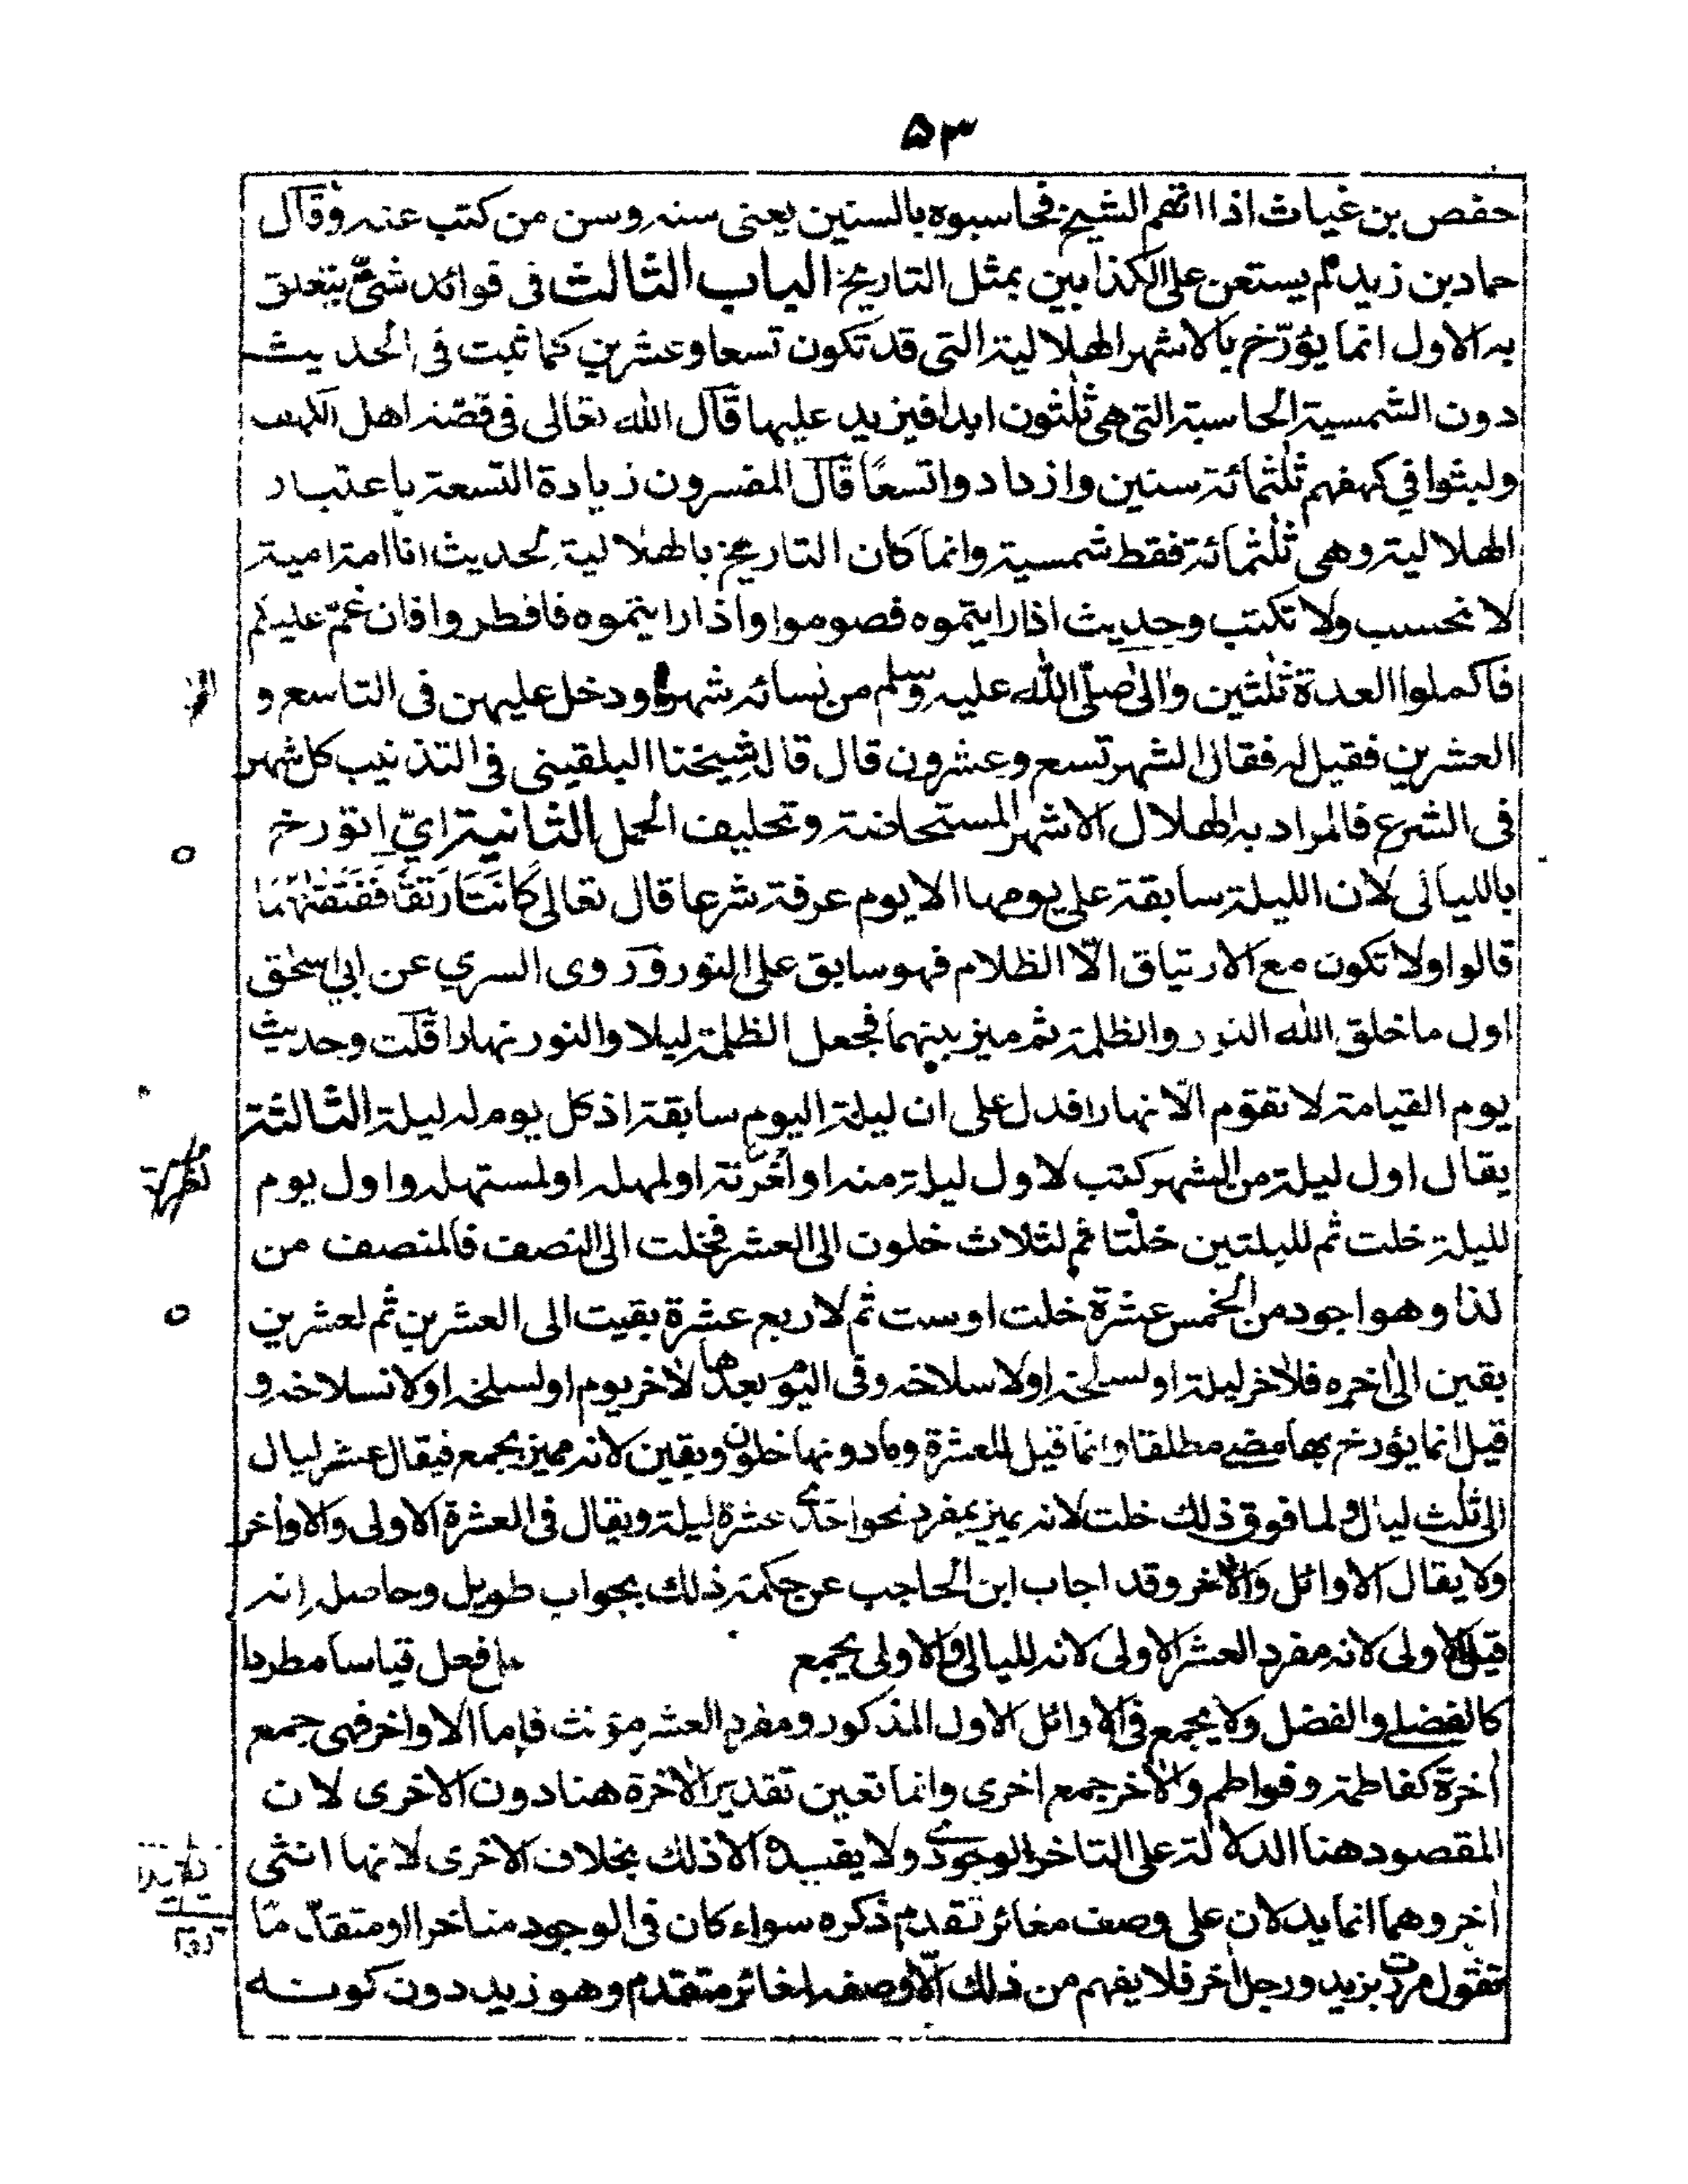 ٥٣
حفص بن غياث اذا اتهم الشيخ فحاسبوه بالسنين يعنى سنه وسن من كتب عنه وقال
حماد بن زيد لم يستعن على الكذابين بمثل التاريخ الباب الثالث فى فوائد شتى يتعلق
به الاول انما يؤرّخ بالاشهر الهلالية التى قد تكون تسعا وعشرين كما ثبت فى الحديث
دون الشمسية الحاسبة التى هى ثلثون ابدا فيزيد عليها قال الله تعالى فى قصة اهل الكهف
ولبثوا في كهفهم ثلثمائة سنين وازدادوا تسعًا قال المفسرون زيادة التسعة باعتبار
الهلالية وهى ثلثمائة فقط شمسية وانما كان التاريخ بالهلالية لحديث انا امة امية
لا نحسب ولا نكتب وحديث اذا رايتموه فصوموا واذا رايتموه فافطروا فان غمّ عليكم
فاكملوا العدة ثلثين والى صلّى الله عليه وسلم من نسائه شهرا ودخل عليهن فى التاسع و
العشرين فقيل له فقال الشهر تسع وعشرون قال قال شيخنا البلقينى فى التذنيب كل شهر
فى الشرع فالمراد به الهلال الا شهر المستحاضة وتخليف الحمل الثانية ايّ اتورخ
بالليالى لان الليلة سابقة على يومها الا يوم عرفة شرعا قال تعالى كَانَتَا رَتْقًا فَفَتَقْنٰهُمَا
قالوا ولا تكون مع الارتياق الّا الظلام فهو سابق على النور وروى السري عن ابي اسحٰق
اول ما خلق الله النور والظلمة ثم ميز بينهما فجعل الظلمة ليلا والنور نهارا قلت وحديث
يوم القيامة لا تقوم الّا نهارا فدل على ان ليلة اليوم سابقة اذ كل يوم له ليلة الثالثة
يقال اول ليلة من الشهر كتب لاول ليلة منه او لغرته او لمهله او لمستهله واول يوم
لليلة خلت ثم لليلتين خلتا ثم لثلاث خلون الى العشر فخلت الى النصف فالمنصف من
كذا وهو اجود من الخمس عشرة خلت او ست ثم لاربع عشرة بقيت الى العشرين ثم لعشرين
بقين الى اخره فلاخر ليلة او لسلخه او لا سلاخه وفى اليوم بعدها لاٰخر يوم او لسلخه او لانسلاخه و
قيل انما يؤرخ بها مضى مطلقا وانما قيل للعشرة وما دونها خلون وبقين لانه مميز بجمع فيقال عشر ليال
الى ثلث ليال ولما فوق ذلك خلت لانه يميز بمفرد نحو احدى عشرة ليلة ويقال فى العشرة الاولى والاواخر
ولا يقال الاوائل والاٰخر وقد اجاب ابن الحاجب عن حكمة ذلك بجواب طويل وحاصله انه
قيل الاولى لانه مفرد العشر الاولى لانه لليالى والاولى يجمع افعل قياسا مطردا
كالفضلى والفضل ولا يجمع فى الاوائل الاول المذكور ومفرد العشر مؤنث فاما الاواخر فهى جمع
اٰخرة كفاطمة وفواطم والاٰخر جمع اخرى وانما تعين تقدير الاٰخرة هنا دون الاخرى لان
المقصود هنا الدلالة على التاخر الوجودى ولا يفيده الا ذلك بخلاف الاخرى لانها انثى
اٰخر وهما انما يدلان على وصف مغائر تقدم ذكره سواء كان فى الوجود متاخرا او متقدما
تقول مررت بزيد ورجل اٰخر فلا يفهم من ذلك الّا وصفه لمغائر متقدم وهو زيد دون كونه